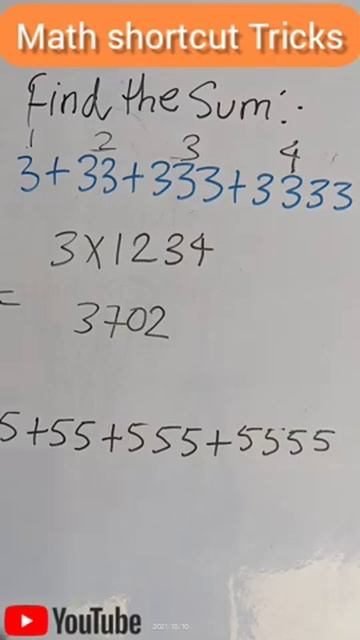 Math shortcut Tricks
Find the Sum:-
1 2 3 4
3+33+333+3333
3×1234
= 3702
5+55+555+5555
YouTube
2021/10/10